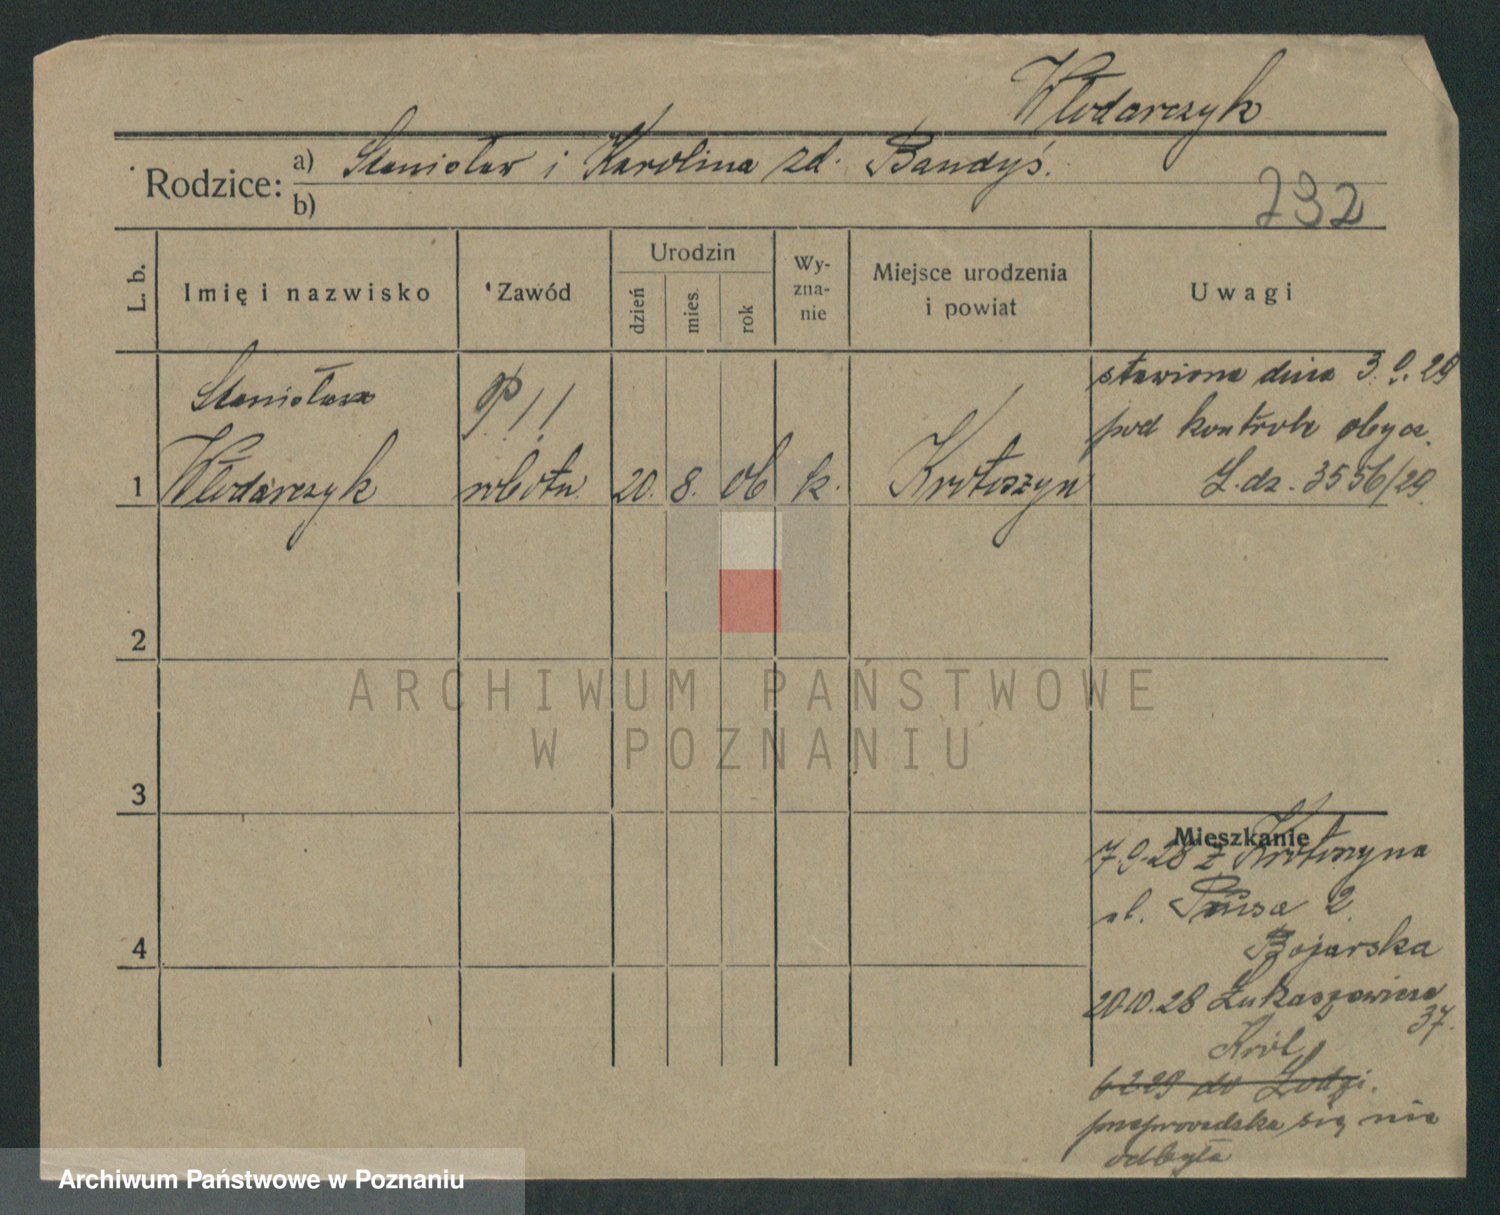 Włodarczyk
Rodzice: a) Stanisław i Karolina zd. Bandyś.
b)
732
L. b.
Imię i nazwisko
Zawód
Urodzin
dzień
mies.
rok
Wy-
zna-
nie
Miejsce urodzenia
i powiat
Uwagi
Stanisława
1 Włodarczyk
P!!
robotn.
20. 8. 06 k.
Krotoszyn
stawiona dnia 3.9.29
pod kontrolę obycz.
L.dz. 3556/29.
2
3
4
Mieszkanie
7.9.28 z Krotoszyna
ul. Prusa 2
Bojarska
20.10.28 Łukaszewicza
37.
Król
6.2.29 do Łodzi.
przeprowadzka się nie
odbyła
ARCHIWUM PAŃSTWOWE
W POZNANIU
Archiwum Państwowe w Poznaniu